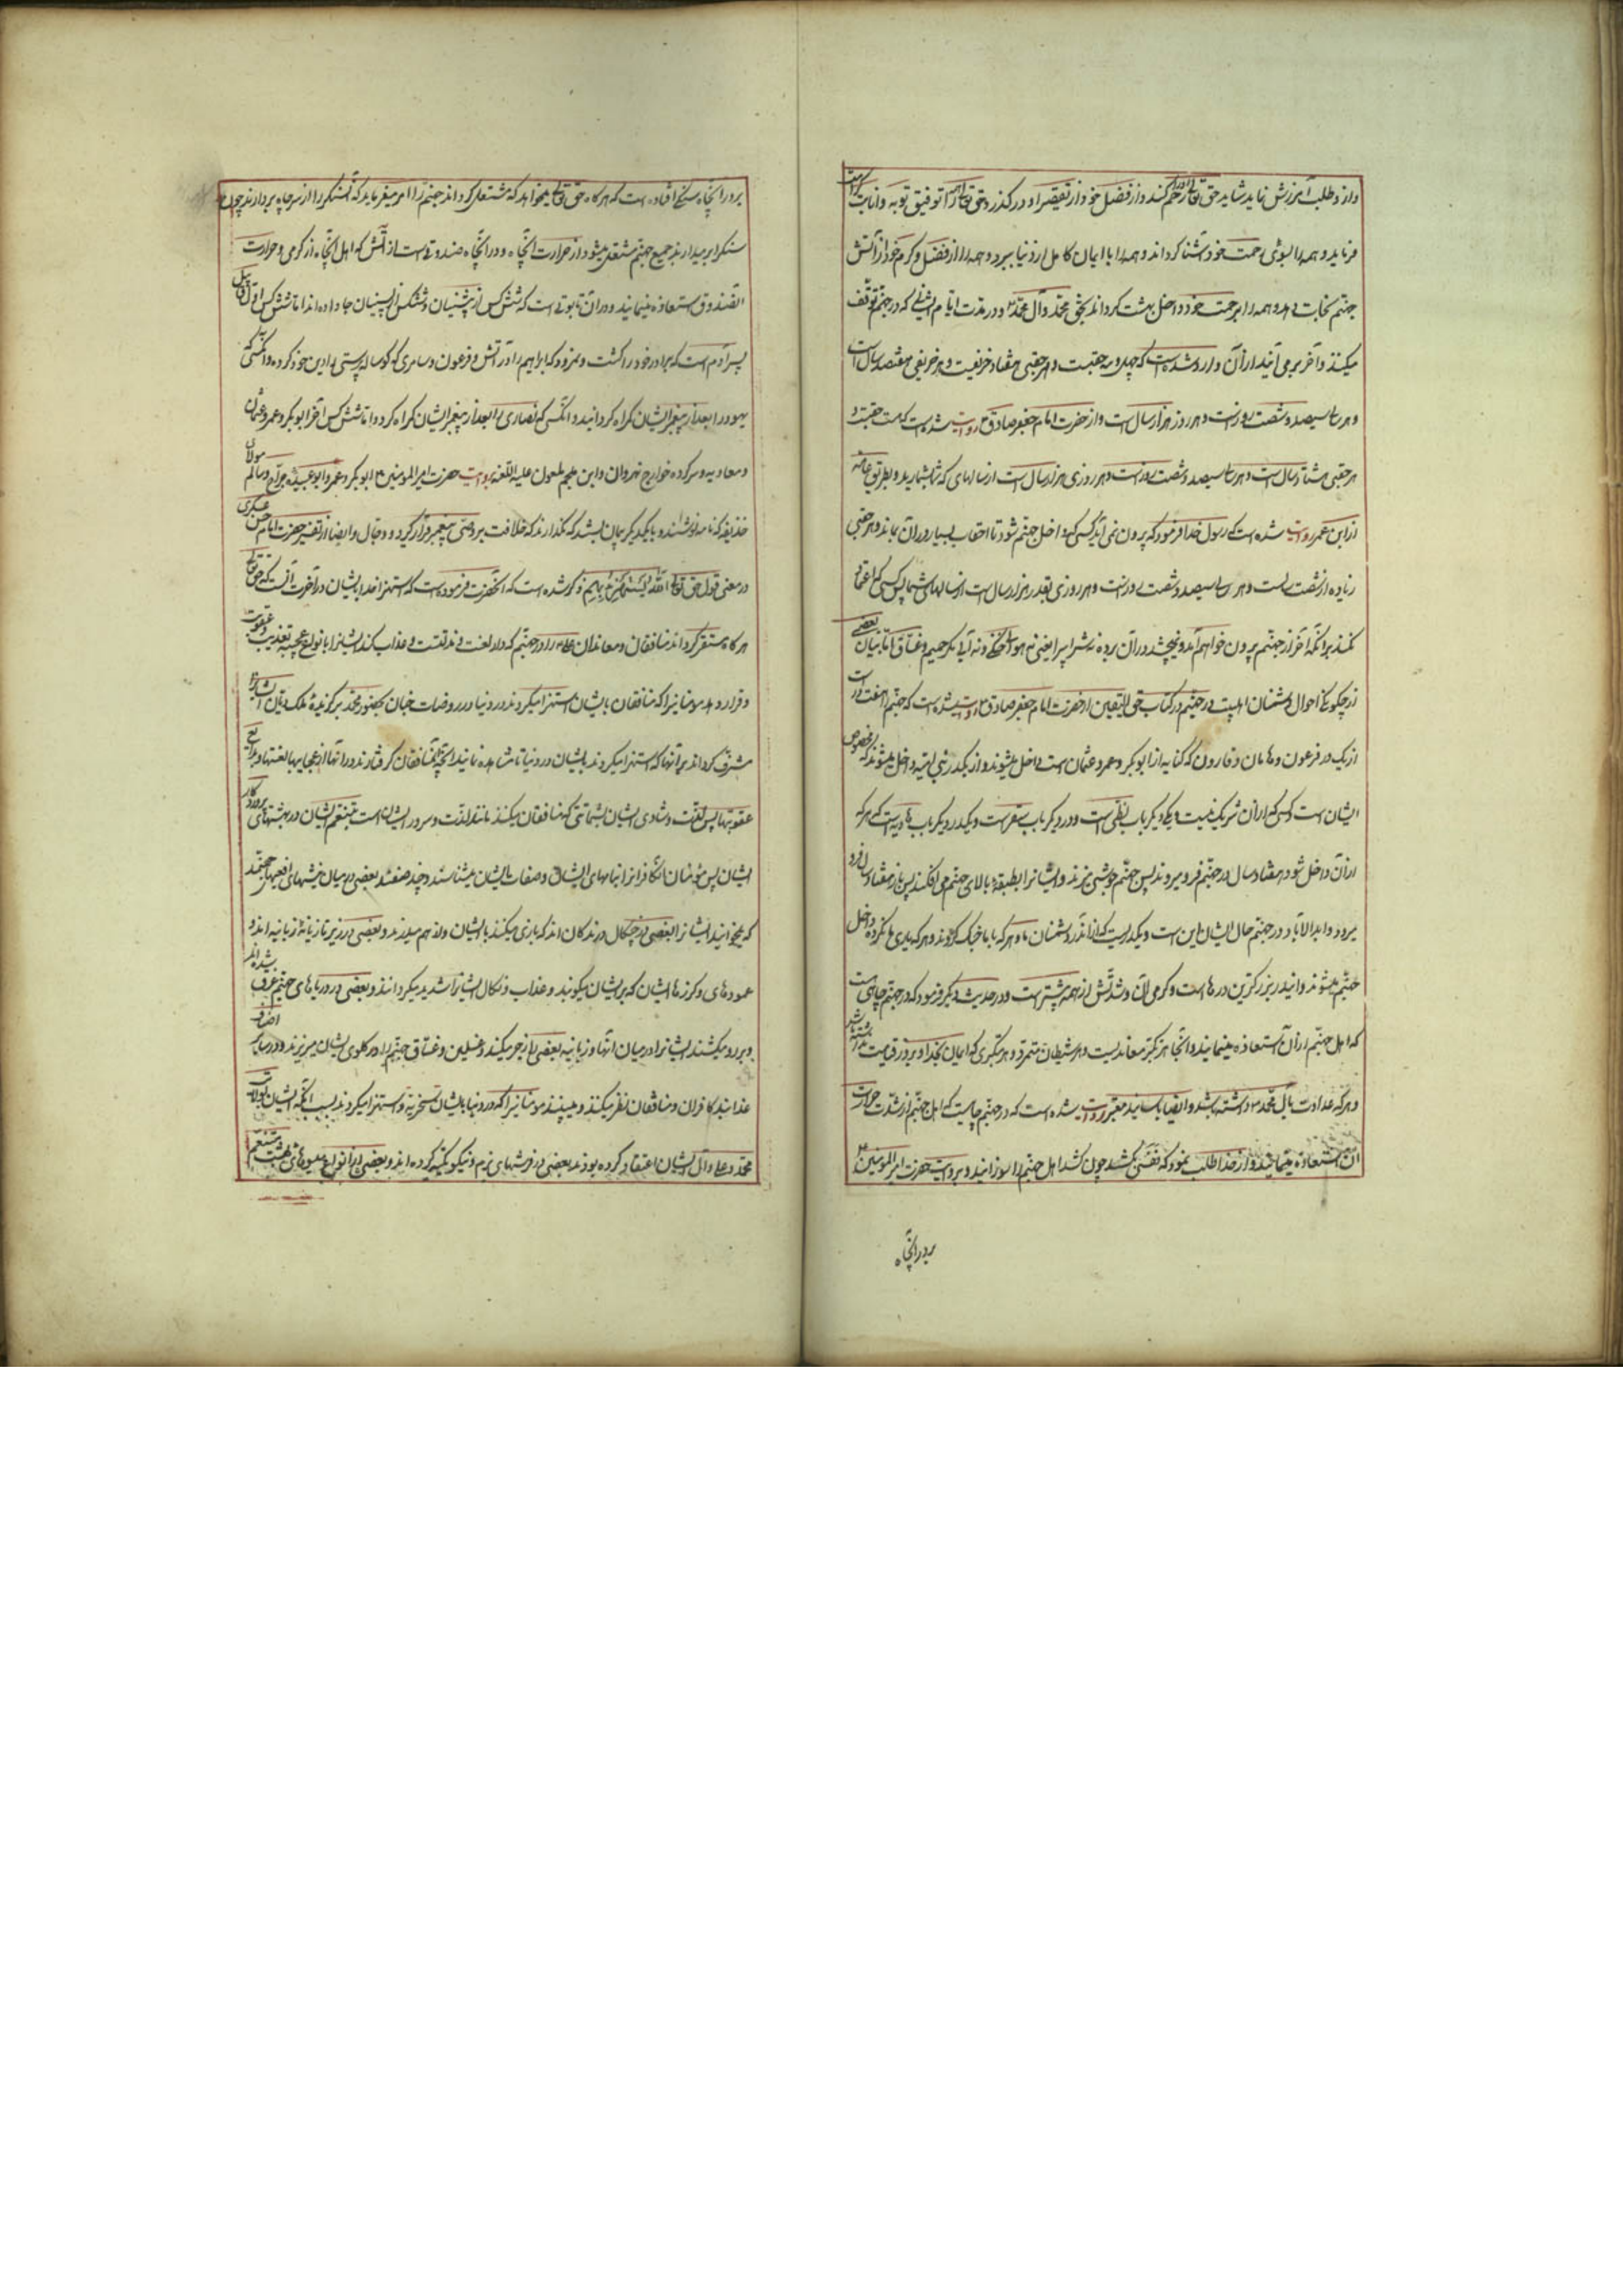 و از و طلب آمرزش نماید شاید حق تعالی او را رحم کند و از فضل خود از تقصیر او در گذرد و حق تعالی همه را توفیق توبه و انابت کرامت
فرماید و همه را بسوی رحمت خود آشنا گرداند و همه را با ایمان کامل از دنیا ببرد و همه را از فضل و کرم خود از آتش
جهنم نجات دهد و همه را برحمت خود داخل بهشت گرداند بحق محمد و آل محمد و در مدت ایام ایشانی که در جهنم توقف
میکنند و آخر برمی آیند از آن وارد شده است که چهل و سه حقبست و هر حقبی هفتاد خریفست و هر خریفی هفتصد سال است
و هر سالی سیصد و شصت روز است و هر روز هزار سال است و از حضرت امام جعفر صادق روایت شده است که هشت حقبست و
هر حقبی هشتاد سال است و هر سالی سیصد و شصت روز است و هر روزی هزار سال است از سالهای که شما بشمارید و بطریق عامه
از ابن عمر روایت شده است که رسول خدا فرمود که بیرون نمی آید کسی که داخل جهنم شود تا احقاب بسیار در آن بماند و هر حقبی
زیاده از شصت سال است و هر سالی سیصد و شصت روز است و هر روزی بقدر هزار سال است از سالهای شما پس کسی اعتماد
نکند بر آنکه آخر از جهنم بیرون خواهم آمد و نمیچشند در آن برد و نه شراب را یعنی نه هوای خنکی و نه آبی مگر حمیم و غساق اما بیان بعضی
از چگونگی احوال دشمنان اهلبیت در جهنم در کتاب حق الیقین از حضرت امام جعفر صادق روایت شده است که جهنم را هفت در است
از یک در فرعون و هامان و قارون که کنایه از ابوبکر و عمر و عثمان است داخل میشوند و از یکدر بنی امیه داخل میشوند که مخصوص
ایشان است و کسی که از آن شریک نیست و یکی دیگر باب لظی است و در دیگر باب سقر است و یکدر دیگر باب هاویه است که هر که
از آن داخل شود هفتاد سال در جهنم فرو میروند پس جهنم جوشی میزند و ایشانرا بطبقه بالای جهنم می افکند پس باز هفتاد سال فرو
میرود و ابد الآباد در جهنم حال ایشان این است و یکدریست که از آن در دشمنان ما و هر که با ما جنک کردند و هر که یاری ما نکرده داخل
جهنم میشوند و این در بزرگترین درهاست و گرمی آن و شدتش از همه بیشتر است و در حدیث دیگر فرمود که در جهنم چاهی است
که اهل جهنم از آن استعاذه مینمایند و آنجا هر متکبر معاندیست و هر شیطان متمرد و هر متکبری که ایمان بخدا و بروز قیامت نداشته باشد
و هر که عداوت بآل محمد داشته باشد و ایضا بسند معتبر روایت شده است که در جهنم چاهیست که اهل جهنم از شدت حرارت
آن استعاذه مینمایند و از خدا طلب نمود که نفسی بکشد چون کشید اهل جهنم را سوزانید و بروایت حضرت امیر المومنین
بر در آنچاه
بر در آنچاه سنگی افتاده است که هر گاه حق تعالی میخواهد که مشتعل گرداند جهنم را امر میفرماید که آن سنگ را از سر چاه بردارند چون
سنگ را بر میدارند جمیع جهنم مشتعل میشود از حرارت آنچاه و در آنچاه صندوقی است از آتش که اهل آنچاه از گرمی و حرارت
آنصندوق استعاذه مینمایند و در آن تابوتی است که شش کس از پیشینیان و شش کس از پسینیان جا داده اند اما شش کس اول قابیل
پسر آدم است که برادر خود را کشت و نمرود که ابراهیم را در آتش و فرعون و سامری که گوساله پرستی را دین خود کرده و آنکسی که
یهود را بعد از پیغمبر ایشان گمراه گردانید و آنکسی که نصاری را بعد از پیغمبر ایشان گمراه کرد و اما شش کس آخر ابوبکر و عمر و عثمان
و معاویه و سرکرده خوارج نهروان و ابن ملجم ملعون علیه اللعنه و بروایت حضرت امیر المومنین ابوبکر و عمر و ابو عبیده جراح و سالم مولای
حذیفه که نامه نوشتند و با یکدیگر پیمان بستند که نگذارند که خلافت بر وصی پیغمبر قرار گیرد و دجال و ایضا از تفسیر حضرت امام حسن عسکری
در معنی قول حق تعالی الله یستهزئ بهم ذکر شده است که آنحضرت فرموده است که استهزا خدا بایشان در آخرت آنست که حق تعالی
هر گاه مستقر گرداند منافقان و معاندان علی را در جهنم که دار لعنت و مذلتست و عذاب کند ایشانرا بانواع عجیبه تعذیب و عقوبت
و قرار دهد مومنانیرا که منافقان بایشان استهزا میکردند در دنیا در روضات جنان بحضور محمد برگزیده ملک دیان ایشانرا
مشرف گرداند بر آنها که استهزا میکردند بایشان در دنیا تا مشاهده نمایند آنچه آن منافقان گرفتارند در آنها از عجایب لعنتها و بدایع
عقوبتها پس لذت و شادی ایشان بشماتتی که منافقان میکنند مانند لذت و سرور ایشان است بتنعم ایشان در بهشتهای پروردگار
ایشان پس مومنان آن کافرانرا بنامهای ایشان و صفات ایشان میشناسند و چند صنفند بعضی در میان نیشهای افعیهای جهنمند
که میخایند ایشانرا بعضی در چنگال درندگان اند که بازی میکنند بایشان و از هم میدرند و بعضی در زیر تازیانه زبانیه اند و
عمودهای و گرزها ایشان که بر ایشان میکوبند و عذاب و نکال ایشانرا شدید میگردانند و بعضی در دریاهای حمیم غرق شده اند
و بر رو میکشند ایشانرا در میان آنها و زبانیه بعضی را زجر میکنند و غسلین و غساق جهنم را در گلوی ایشان میریزند و در سایر اصناف
عذابند کافران و منافقان نظر میکنند و میبینند مومنانیرا که در دنیا بایشان سخریه و استهزا میکردند بسبب آنکه ایشان بولایت
محمد و علی و آل ایشان اعتقاد کرده بودند بعضی در فرشهای نرم و نیکو تکیه کرده اند و بعضی از انواع میوهای بهشت متنعم